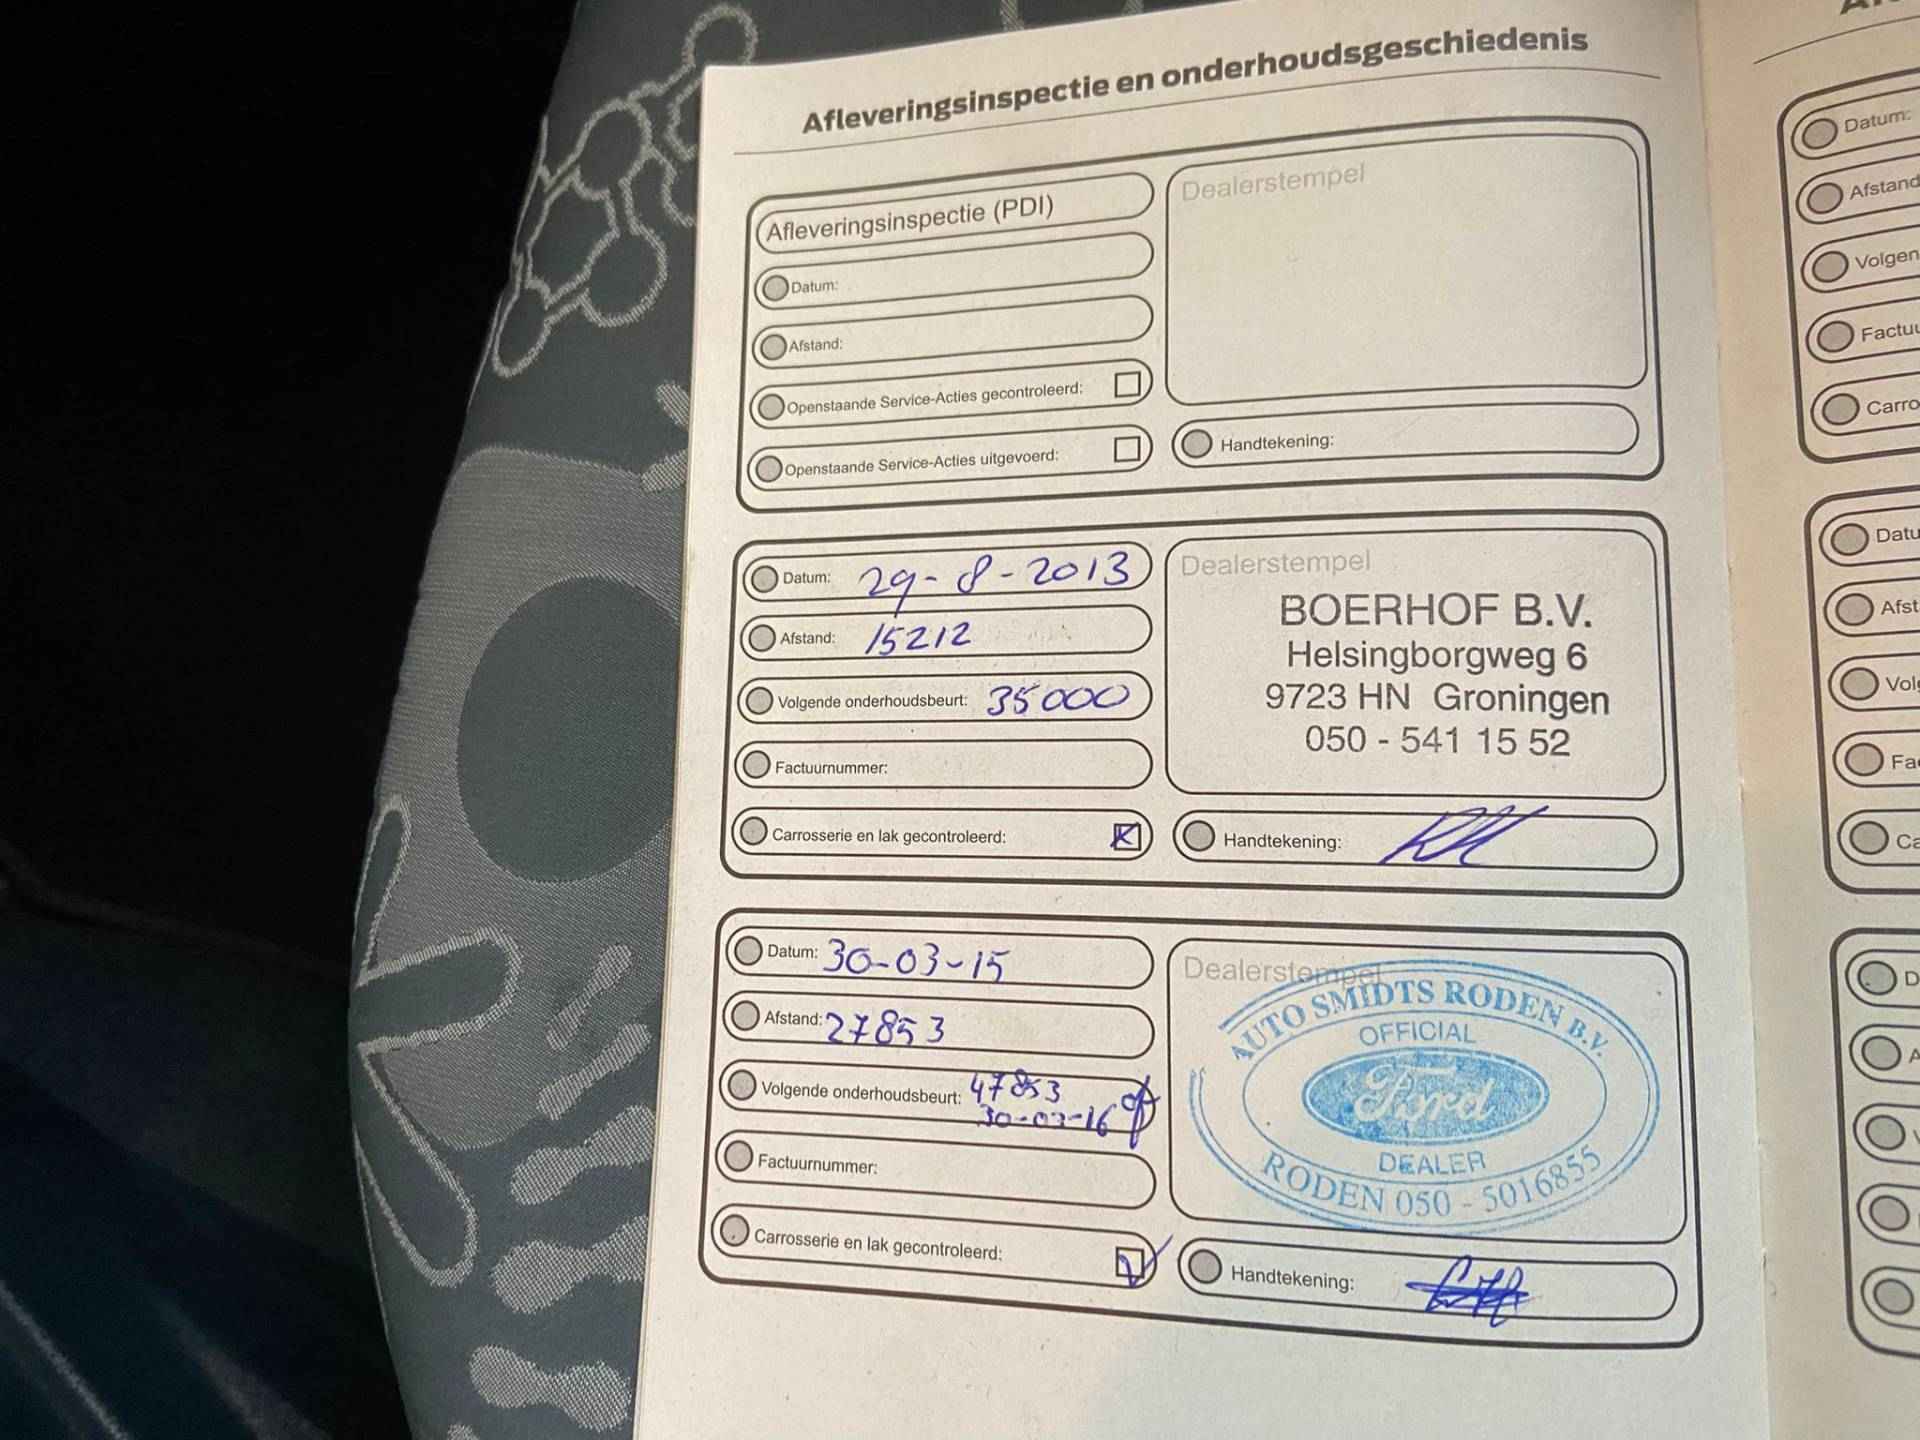 Afleveringsinspectie en onderhoudsgeschiedenis
Afleveringsinspectie (PDI)
Datum:
Afstand:
Openstaande Service-Acties gecontroleerd:
Openstaande Service-Acties uitgevoerd:
Dealerstempel
Handtekening:
Datum: 29-8-2013
Afstand: 15212
Volgende onderhoudsbeurt: 35000
Factuurnummer:
Carrosserie en lak gecontroleerd:
Dealerstempel
BOERHOF B.V.
Helsingborgweg 6
9723 HN Groningen
050 - 541 15 52
Handtekening:
Datum: 30-03-15
Afstand: 27853
Volgende onderhoudsbeurt: 47853
30-03-16 of
Factuurnummer:
Carrosserie en lak gecontroleerd:
Dealerstempel
AUTO SMIDTS RODEN B.V.
OFFICIAL
Ford
DEALER
RODEN 050 - 5016855
Handtekening:
Datum:
Afstand
Volgen
Factuu
Carro
Datu
Afst
Volg
Fa
Ca
D
A
V